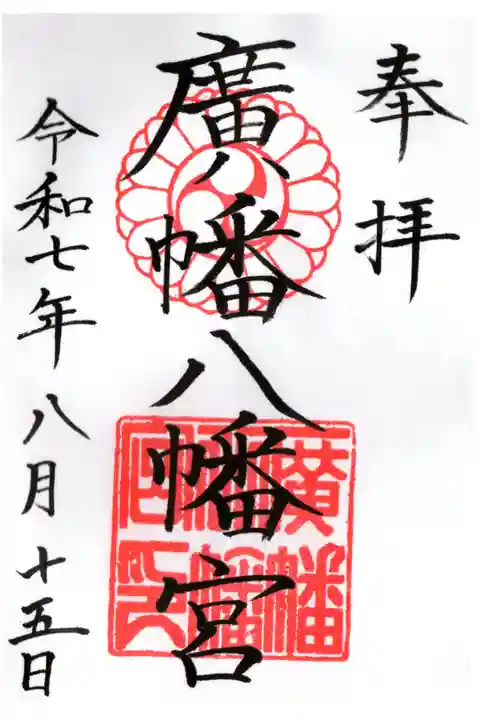 奉拝
廣幡八幡宮
令和七年八月十五日
廣幡
八幡
宮印